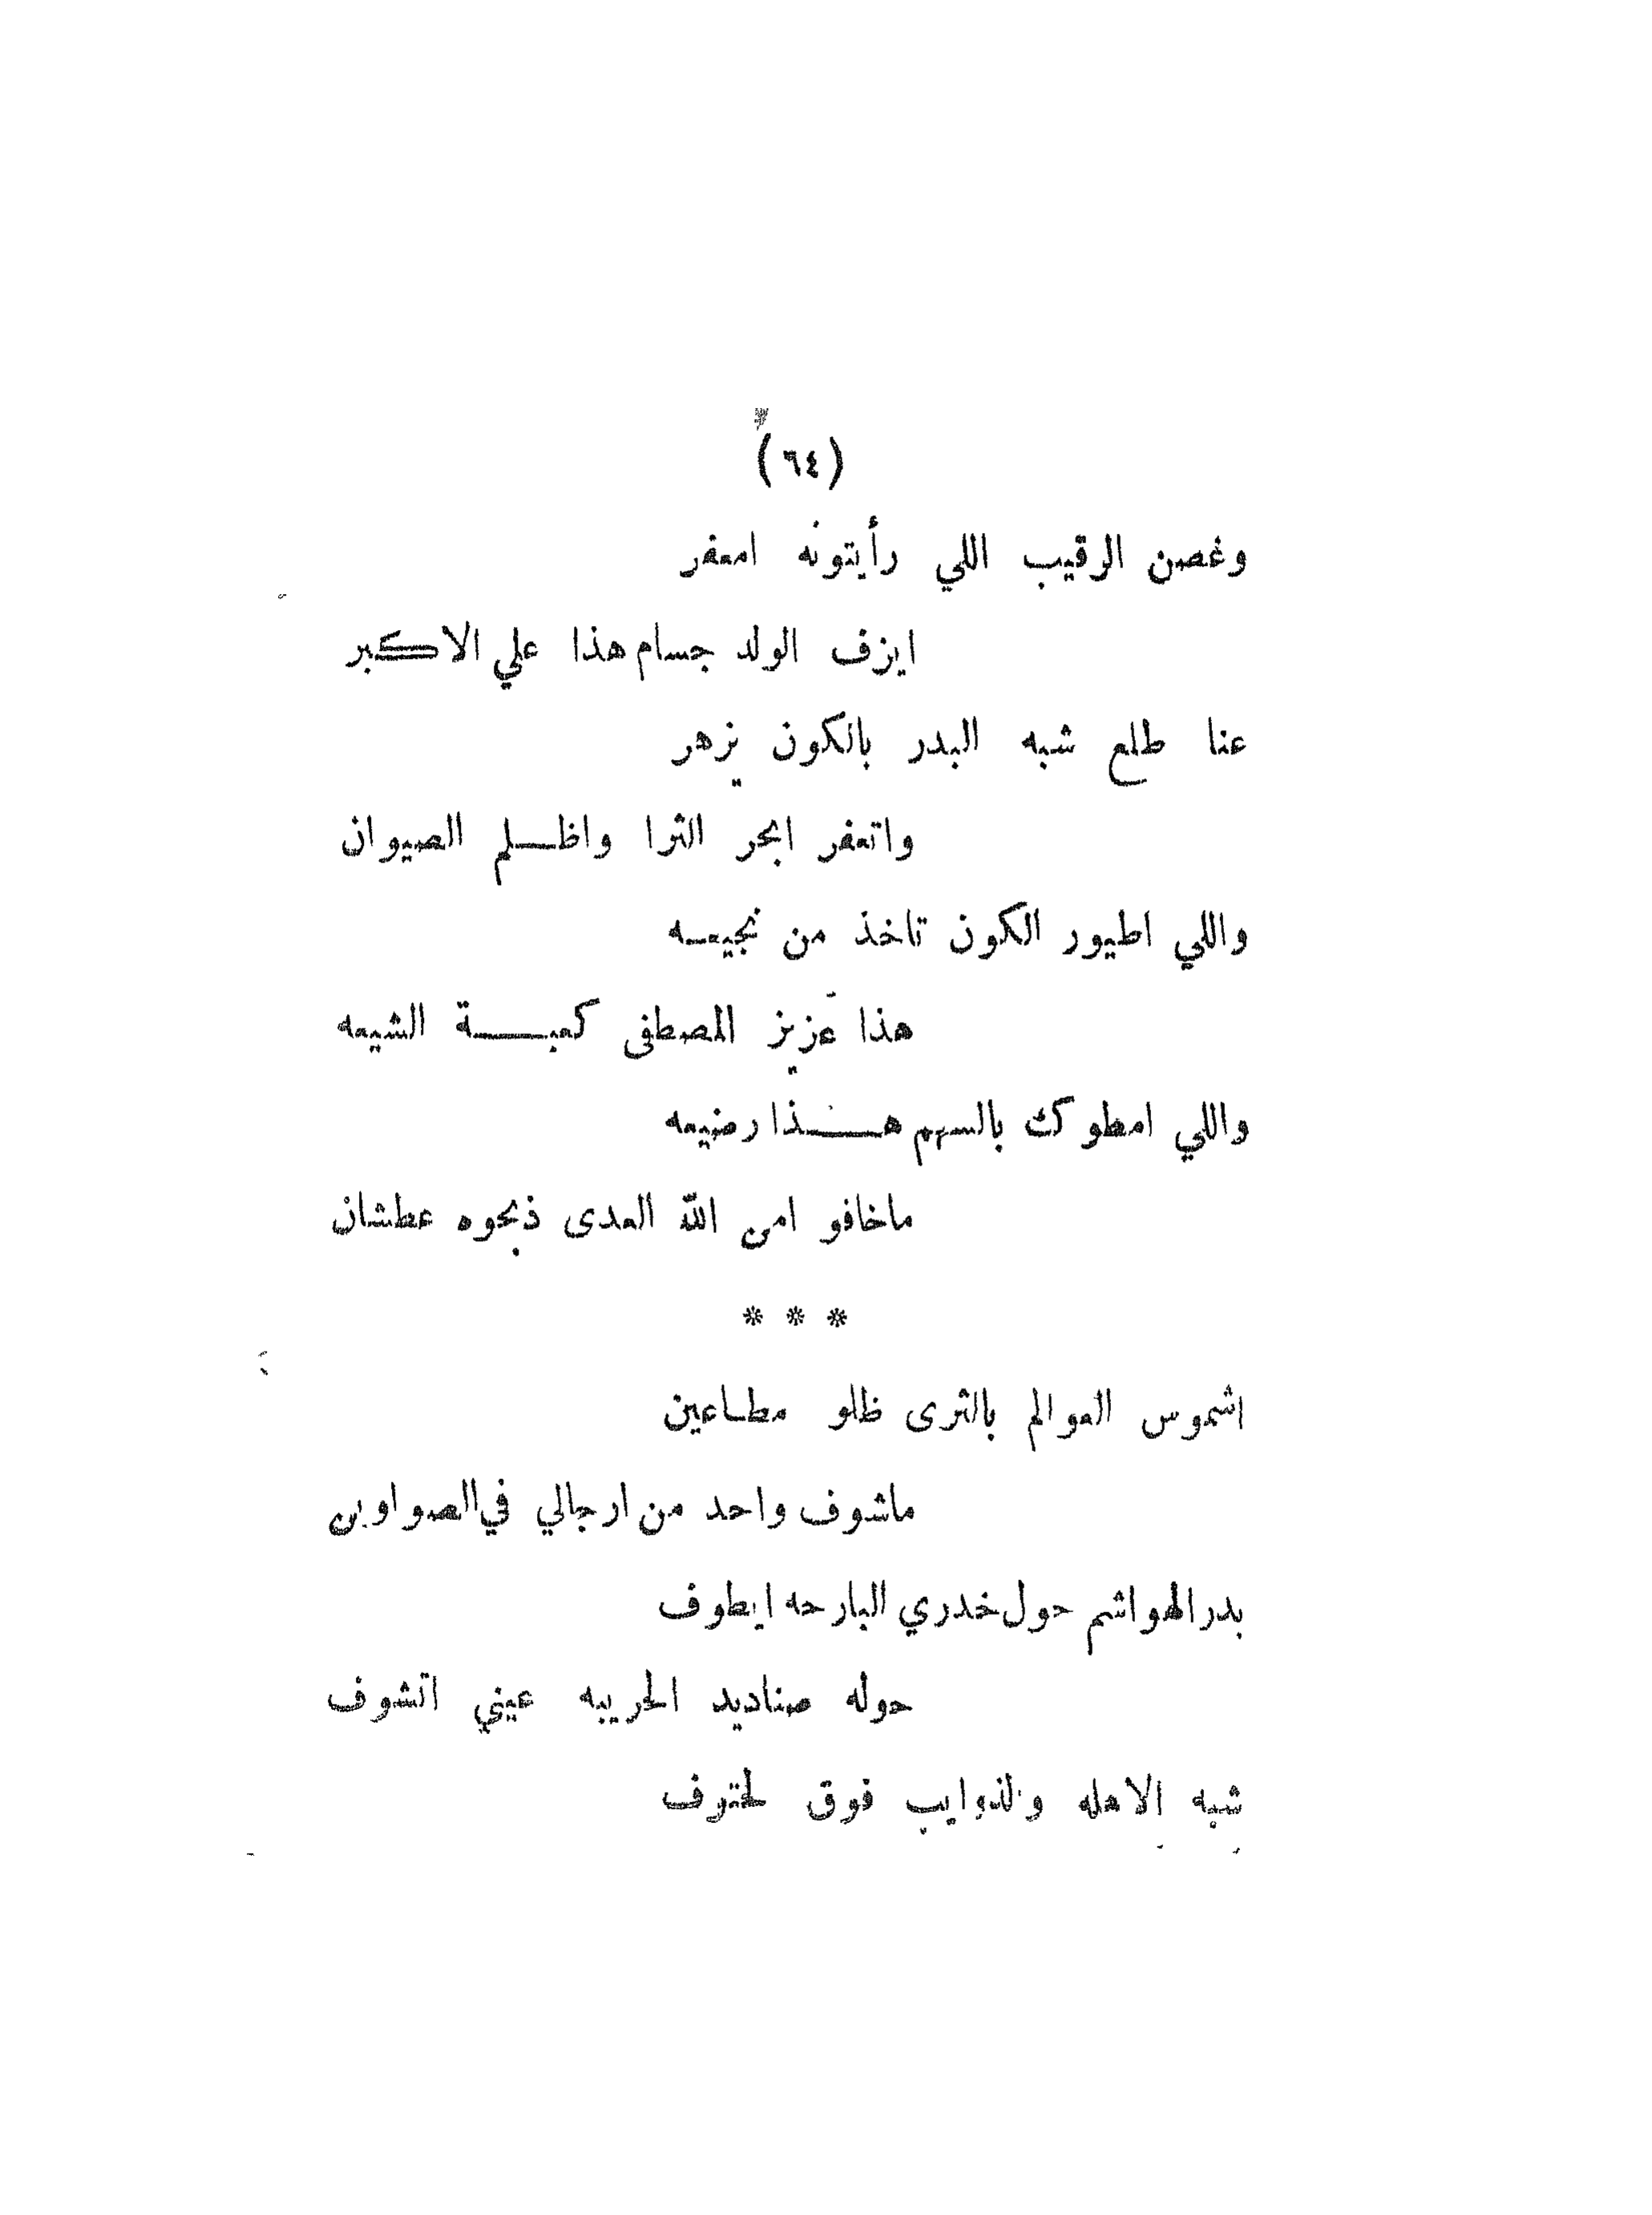 (٦٤)
وغصن الرقيب اللي رأيتونه امعفر
ايزف الولد جسام هذا علي الاكبر
عنا طلع شبه البدر بالكون يزهر
واتعفر ابحر الثرا واظلم الصيوان
واللي اطيور الكون تاخذ من نجيعه
هذا عزيز المصطفى كعبة الشيعه
واللي امطوك بالسهم هذا رضيعه
ماخافو امن الله العدى ذبحوه عطشان
* * *
اشموس العوالم بالثرى ظلو مطاعين
ماشوف واحد من ارجالي في الصواوين
بدر الهواشم حول خدري البارحه ايطوف
حوله صناديد الحريبه عيني اتشوف
شبه الاهله والذوايب فوق لختوف